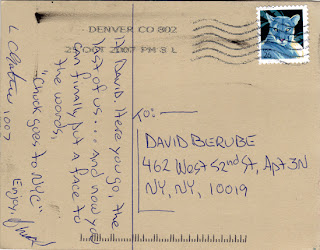 DENVER CO 802
25 OCT 2007 PM 8 L
Hi David. Here you go, the
last of us... and now you
can finally put a face to
the words,
"Chuck goes to NYC"
Enjoy,
1007
TO:
DAVID BERUBE
462 WEST 52nd St, APT 3N
NY, NY, 10019